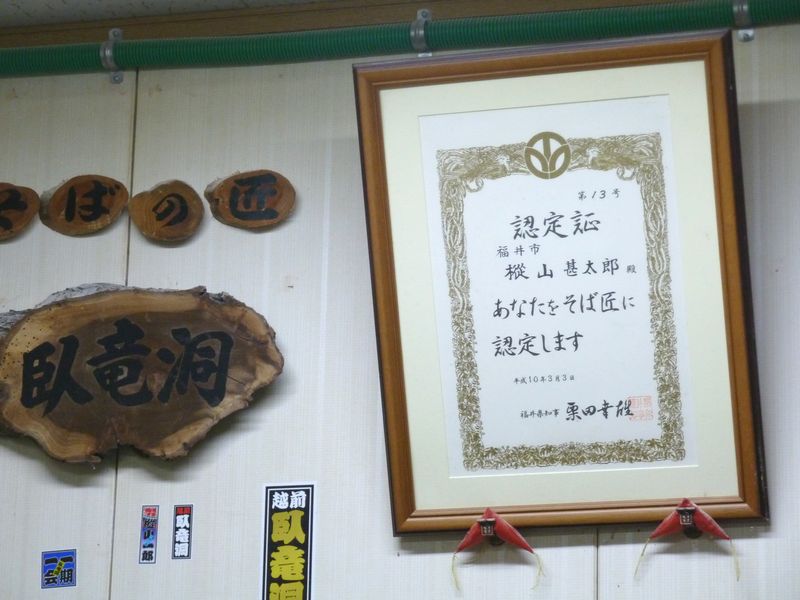 そばの匠
臥竜洞
第13号
認定証
福井市
樅山 甚太郎 殿
あなたをそば匠に
認定します
平成10年3月3日
福井県知事 栗田幸雄
越前
臥竜洞
臥竜洞
会期